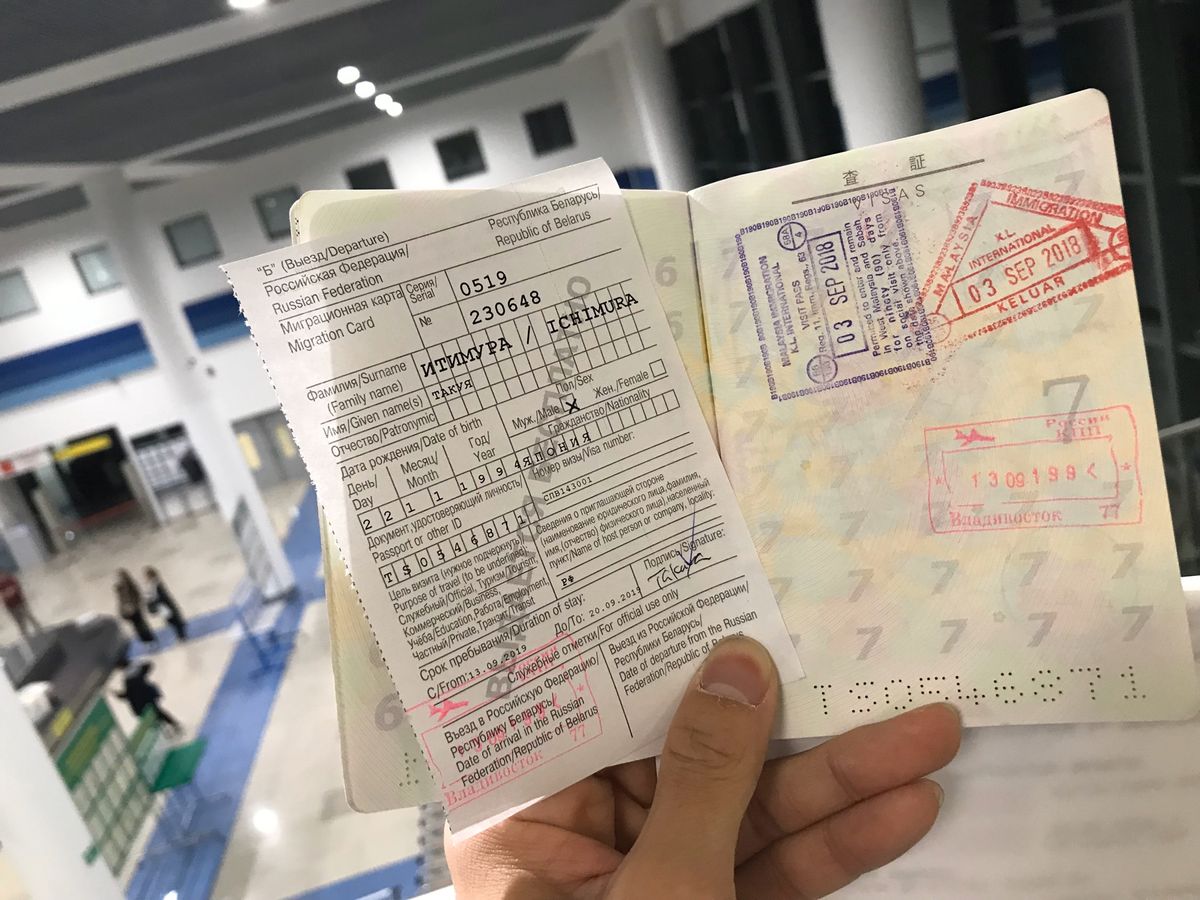 "Б" (Выезд/Departure)
Республика Беларусь/
Republic of Belarus
Российская Федерация/
Russian Federation
Миграционная карта
Migration Card
Серия/
Serial
0519
№
230648
Фамилия/Surname
(Family name)
ИТИМУРА / ICHIMURA
Имя/Given name(s)
ТАКУЯ
Отчество/Patronymic
Дата рождения/Date of birth
День/
Day
Месяц/
Month
Год/
Year
22 11 1994
Пол/Sex
Муж./Male X Жен./Female
Гражданство/Nationality
ЯПОНИЯ
Документ, удостоверяющий личность/
Passport or other ID
TS0546871
Номер визы/Visa number:
СПВ143001
Цель визита (нужное подчеркнуть)/
Purpose of travel (to be underlined):
Служебный/Official, Туризм/Tourism,
Коммерческий/Business,
Учёба/Education, Работа/Employment,
Частный/Private, Транзит/Transit
Сведения о приглашающей стороне
(наименование юридического лица, фамилия,
имя, (отчество) физического лица), населенный
пункт/Name of host person or company, locality:
РФ
Срок пребывания/Duration of stay:
С/From: 13.09.2019
До/To: 20.09.2019
Подпись/Signature:
Takuya
Служебные отметки/For official use only
Въезд в Российскую Федерацию/
Республику Беларусь/
Date of arrival in the Russian
Federation/Republic of Belarus
Выезд из Российской Федерации/
Республики Беларусь/
Date of departure from the Russian
Federation/Republic of Belarus
Владивосток 77
査 証
VISAS
MALAYSIA IMMIGRATION
K.L INTERNATIONAL
VISIT PASS
03 SEP 2018
Permitted to enter and remain
in West Malaysia and Sabah
for ninety (90) days
on social visit only from
the date shown above
IMMIGRATION
MALAYSIA
K.L
INTERNATIONAL
03 SEP 2018
KELUAR
Россия
КПП
13 09 199
Владивосток 77
6
7
TS0546871